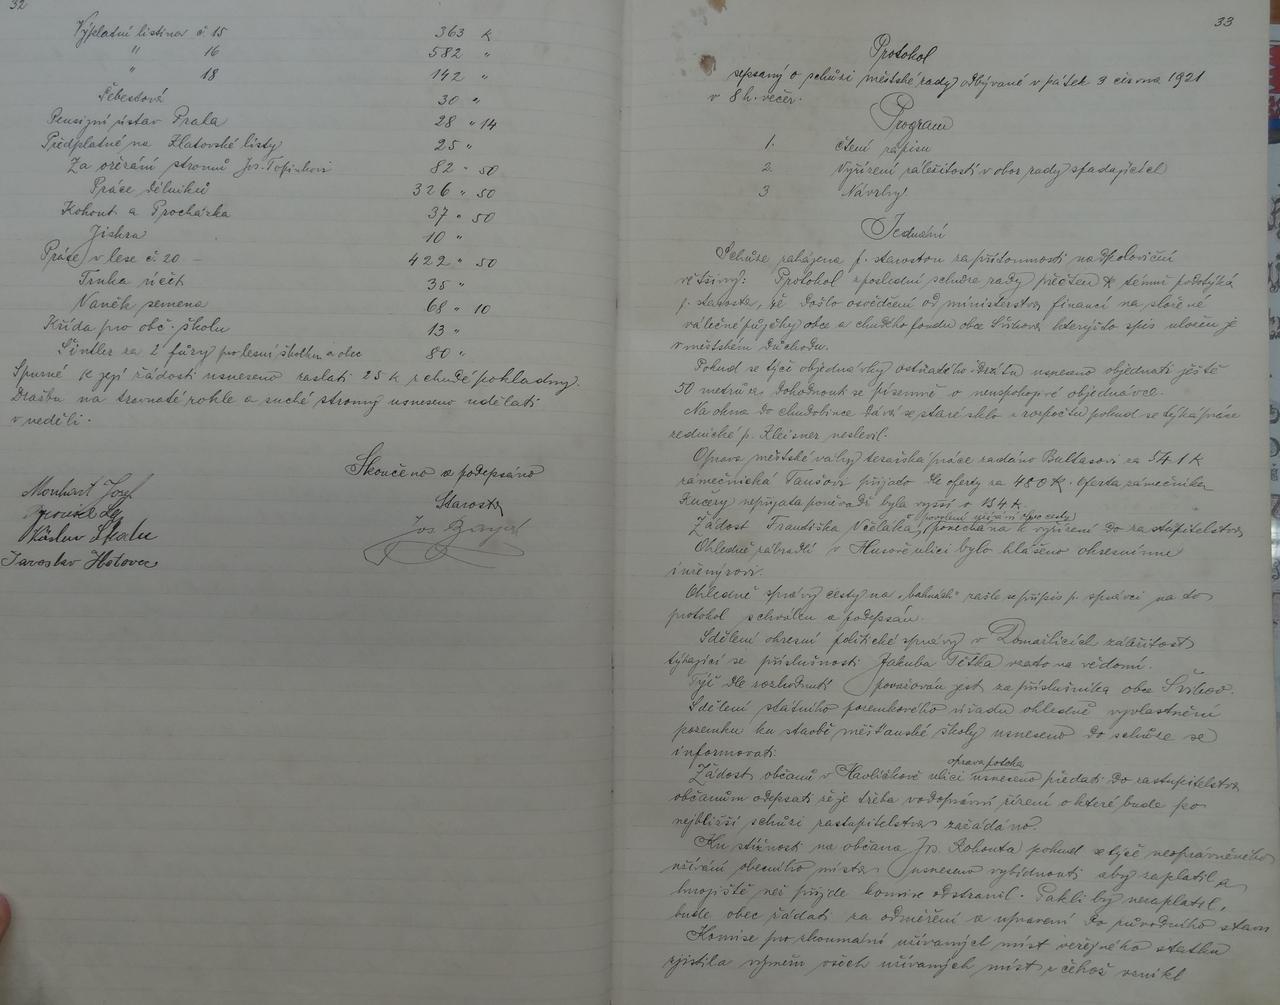 32
Výplatní listina č 15 363 K
" 16 582 "
" 18 142 "
Šebestová 30 "
Pensijní ústav Praha 28 " 14
Předplatné na Klatovské listy 25 "
Za ořezání stromů Jos. 82 " 50
Práce dělníků 326 " 50
Kohout a Procházka 37 " 50
Jiskra 10 "
Práce v lese č. 20 – 422 " 50
Trnka účet 35 "
Vaněk semena 68 " 10
Křída pro obč. školu 13 "
Šintler za 2 fůry pro lesní školku a obec 80 "
Spurné k její žádosti usneseno zaslati 25 K z chudé pokladny.
Dražbu na travnaté rohle a suché stromy usneseno udělati
v neděli.
Skončeno a podepsáno
Starosta
Jos
Josef
Václav
Jaroslav Hotovec
33
Protokol
sepsaný o schůzi městské rady odbývané v pátek 3 června 1921
v 8 h. večer.
Program
1. čtení zápisu
2. Vyřízení záležitostí v obor rady spadajících
3 Návrhy
Jednání
Schůze zahájena p. starostou za přítomnosti nadpoloviční
většiny: Protokol z poslední schůze rady přečten k témuž podotýká
p. starosta, že došlo osvědčení od ministerstva financí na složené
válečné půjčky obce a chudého fondu obce Švihova kterýžto spis uložen je
v městském důchodu.
Pokud se týče objednávky ostnatého drátu usneseno objednati ještě
50 metrů a dohodnout se písemně o neuspokojivé objednávce.
Na okna do chudobince dává se staré sklo z rozpočtu pokud se týká práce
zednické p. Kleisner neslevil.
Oprava městské váhy tesařská práce zadáno Baltasovi za 541 K
zámečnická Taušovi přijato dle oferty za 480 K. Oferta zámečníka
Kučery nepřijata poněvadž byla vyšší o 134 K.
povolení užívání obec cesty
Žádost Františka Včeláka, ponechána k vyřízení do zastupitelstva
Ohledně zábradlí v Husově ulici bylo hlášeno okresnímu
inženýrovi.
Ohledně správy cesty na „bahnách" zašle se přípis p. správci na to
protokol schválen a podepsán.
Sdělení okresní politické správy v Domažlicích záležitost
týkající se příslušnosti Jakuba Tětka vzato na vědomí.
Týž dle rozhodnutí považován jest za příslušníka obce Švihov.
Sdělení státního pozemkového úřadu ohledně vyvlastnění
pozemku ku stavbě měšťanské školy usneseno do schůze se
informovati.
oprava potoka
Žádost občanů v Havlíčkově ulici usneseno předati do zastupitelstva
občanům odepsati že je třeba vodoprávní řízení o které bude po
nejbližší schůzi zastupitelstva zažádáno.
Ku stížnosti na občana Jos. Kohouta pokud se týče neoprávněného
užívání obecního místa usneseno vybídnouti aby zaplatil a
hnojiště než přijde komise odstranil. Pakli by nezaplatil,
bude obec žádati za odměření a upravení do původního stavu
Komise pro zkoumání užívaných míst veřejného statku
zjistila výměru všech užívaných míst z čehož vznikl